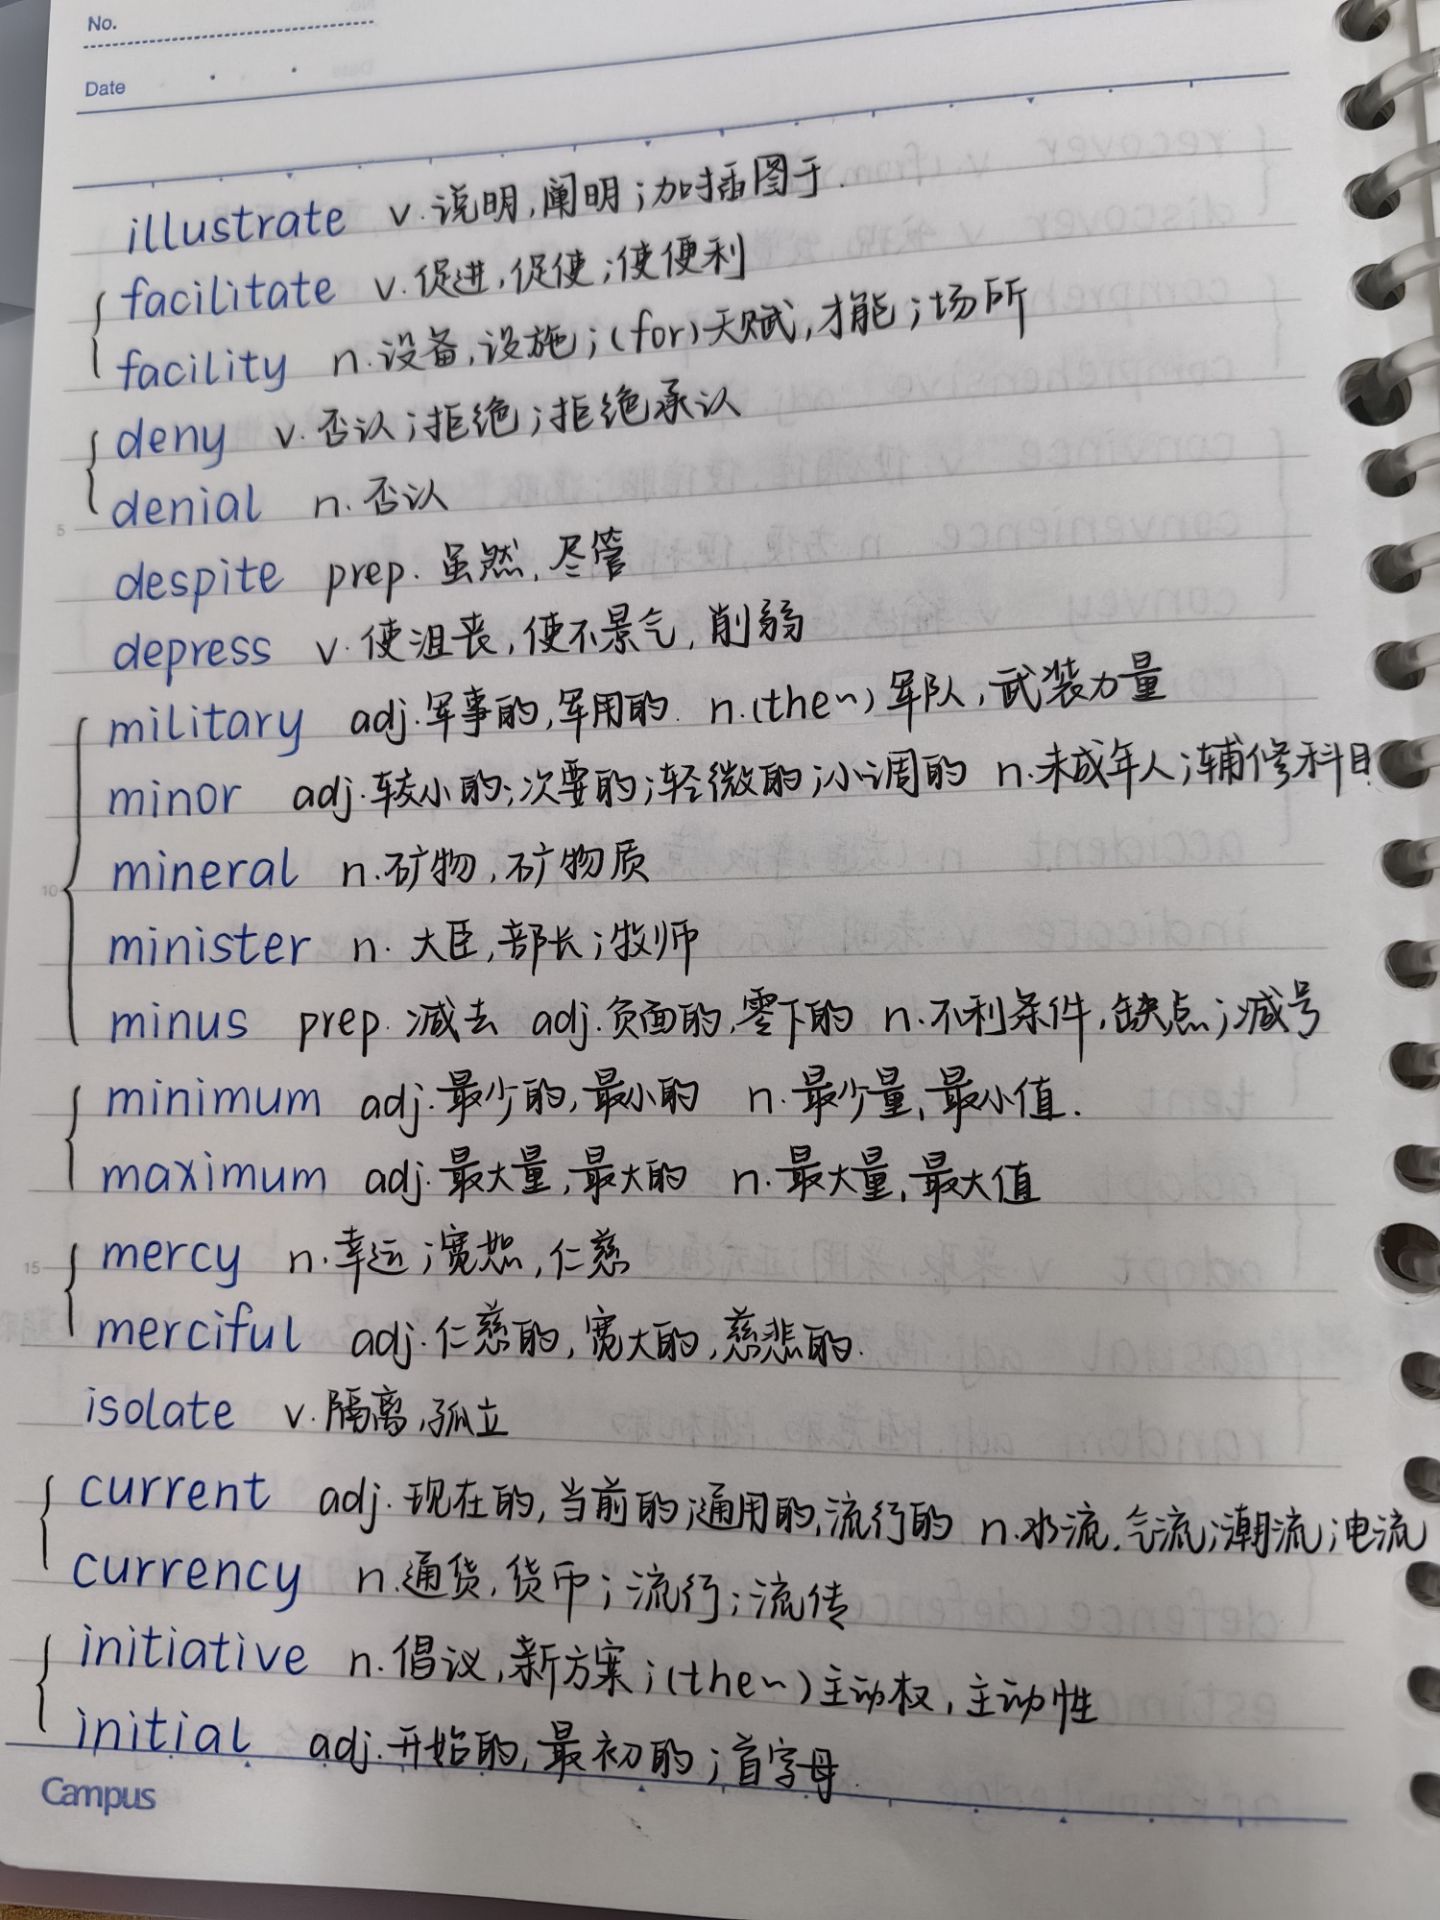 No.
Date
illustrate v.说明,阐明;加插图于.
facilitate v.促进,促使;使便利
facility n.设备,设施;(for)天赋,才能;场所
deny v.否认;拒绝;拒绝承认
denial n.否认
despite prep.虽然,尽管
depress v.使沮丧,使不景气,削弱
military adj.军事的,军用的. n.(the~)军队,武装力量
minor adj.较小的;次要的;轻微的;小调的 n.未成年人;辅修科目.
mineral n.矿物,矿物质
minister n.大臣,部长;牧师
minus prep.减去 adj.负面的,零下的 n.不利条件,缺点;减号
minimum adj.最少的,最小的 n.最少量,最小值.
maximum adj.最大量,最大的 n.最大量,最大值
mercy n.幸运;宽恕,仁慈
merciful adj.仁慈的,宽大的,慈悲的.
isolate v.隔离,孤立
current adj.现在的,当前的;通用的,流行的 n.水流,气流;潮流;电流
currency n.通货,货币;流行;流传
initiative n.倡议,新方案;(the~)主动权,主动性
initial adj.开始的,最初的;首字母.
Campus